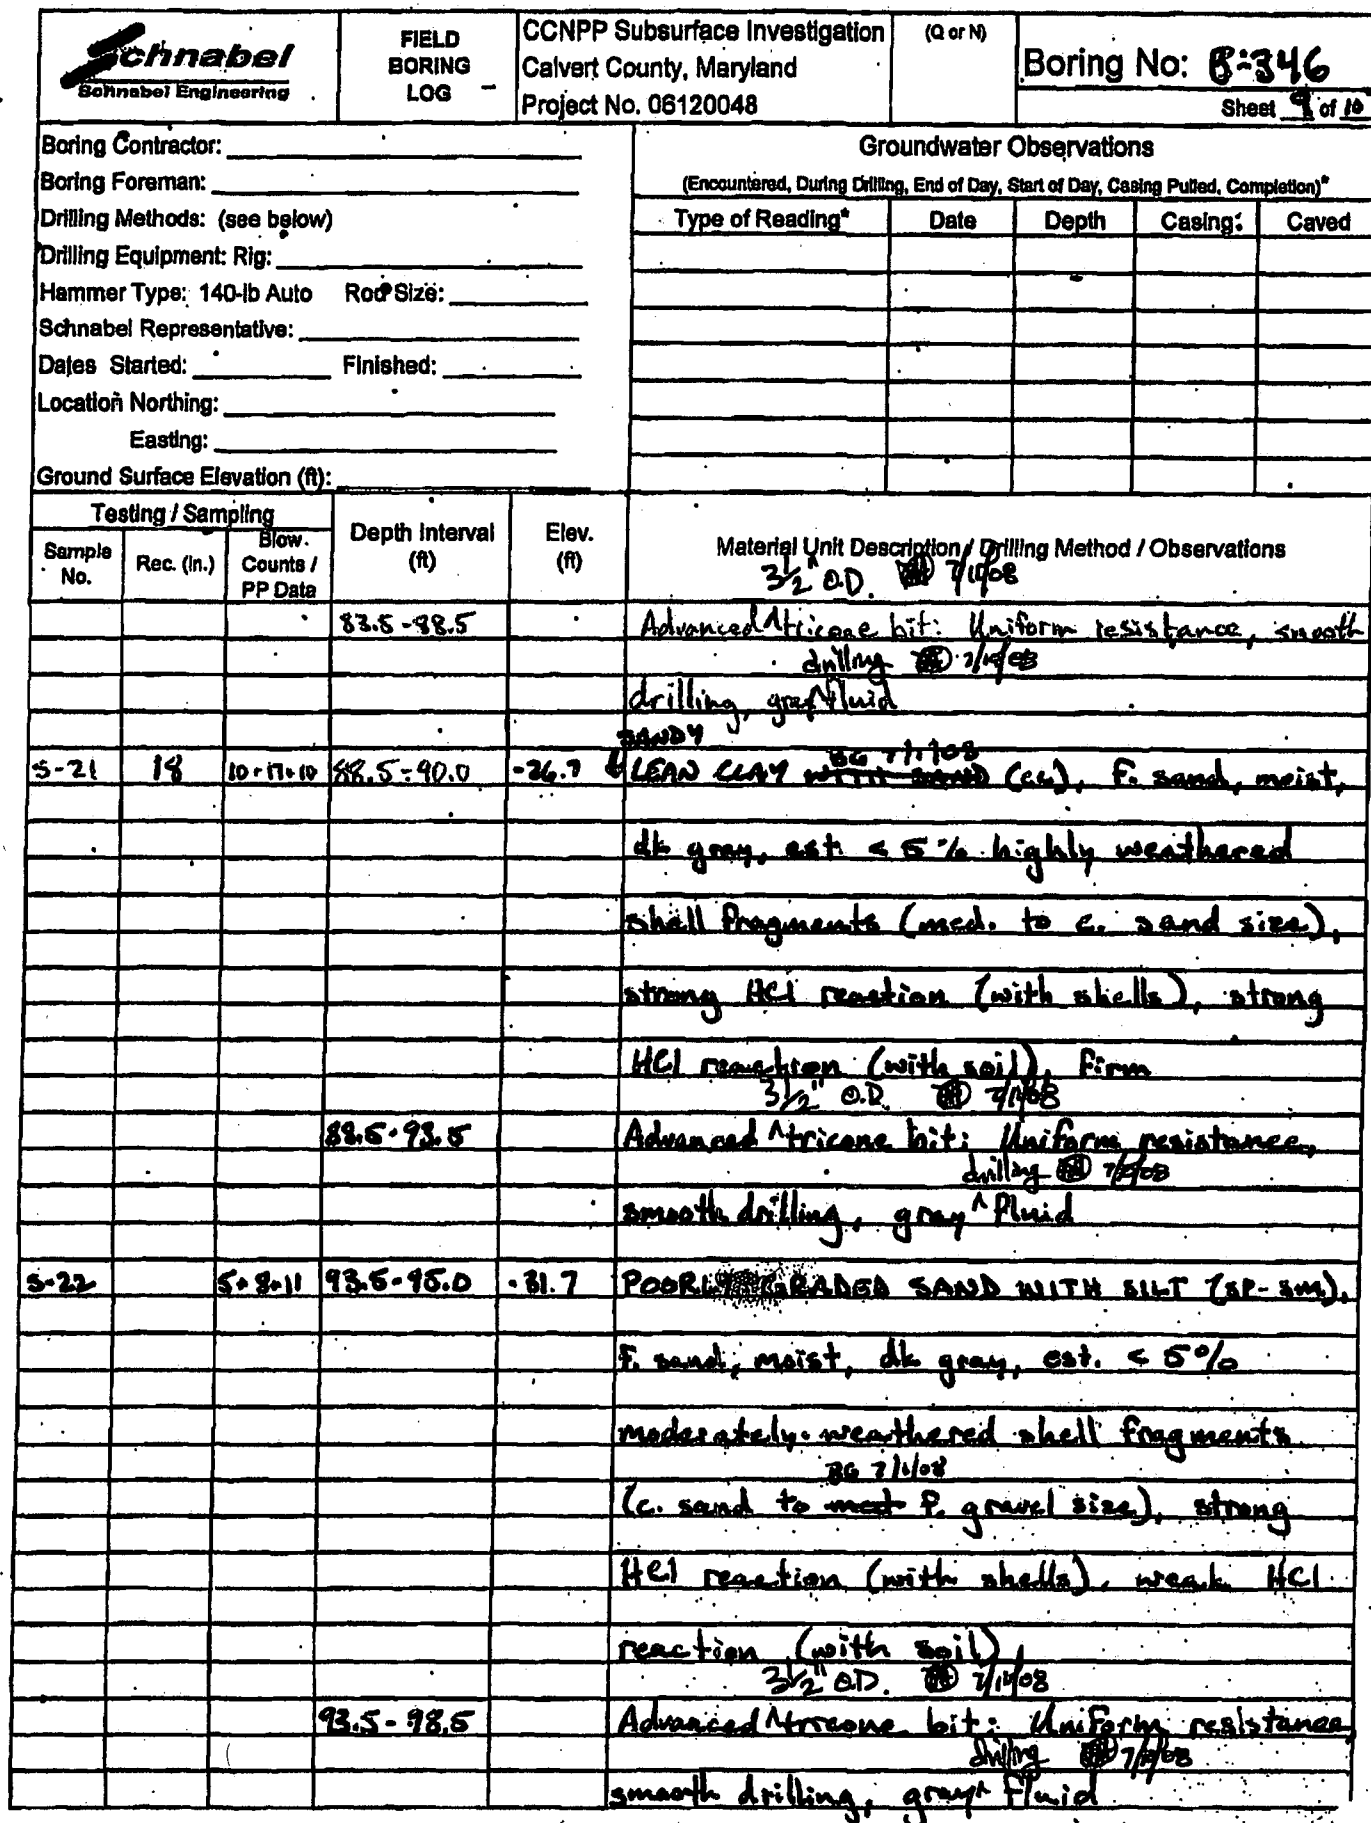 Schnabel
Schnabel Engineering
FIELD
BORING
LOG
CCNPP Subsurface Investigation
Calvert County, Maryland
Project No. 06120048
(Q or N)
Boring No: B-346
Sheet of 10
Boring Contractor:
Boring Foreman:
Drilling Methods: (see below)
Drilling Equipment: Rig:
Hammer Type: 140-lb Auto Rod Size:
Schnabel Representative:
Dates Started: Finished:
Location Northing:
Easting:
Ground Surface Elevation (ft):
Groundwater Observations
(Encountered, During Drilling, End of Day, Start of Day, Casing Pulled, Completion)*
Type of Reading* Date Depth Casing Caved
Testing / Sampling
Sample No. Rec. (in.) Blow Counts / PP Data Depth Interval (ft) Elev. (ft) Material Unit Description / Drilling Method / Observations
3½" O.D.
83.5-88.5 Advanced ^ tricone bit: Uniform resistance, smooth
drilling
drilling, gray ^ fluid
SANDY
BG 7/1/08
S-21 18 10+17+10 88.5-90.0 -26.7 LEAN CLAY WITH SAND (CL), F. sand, moist,
dk gray, est. < 5% highly weathered
shell fragments (med. to c. sand size),
strong HCl reaction (with shells), strong
HCl reaction (with soil), firm
3½" O.D.
88.5-93.5 Advanced ^ tricone bit: Uniform resistance,
drilling
smooth drilling, gray ^ fluid
S-22 5+8+11 93.5-95.0 -31.7 POORLY GRADED SAND WITH SILT (SP-SM),
F. sand, moist, dk gray, est. < 5%
moderately weathered shell fragments
BG 7/1/08
(c. sand to med F. gravel size), strong
HCl reaction (with shells), weak HCl
reaction (with soil)
3½" O.D.
93.5-98.5 Advanced ^ tricone bit: Uniform resistance,
drilling
smooth drilling, gray ^ fluid